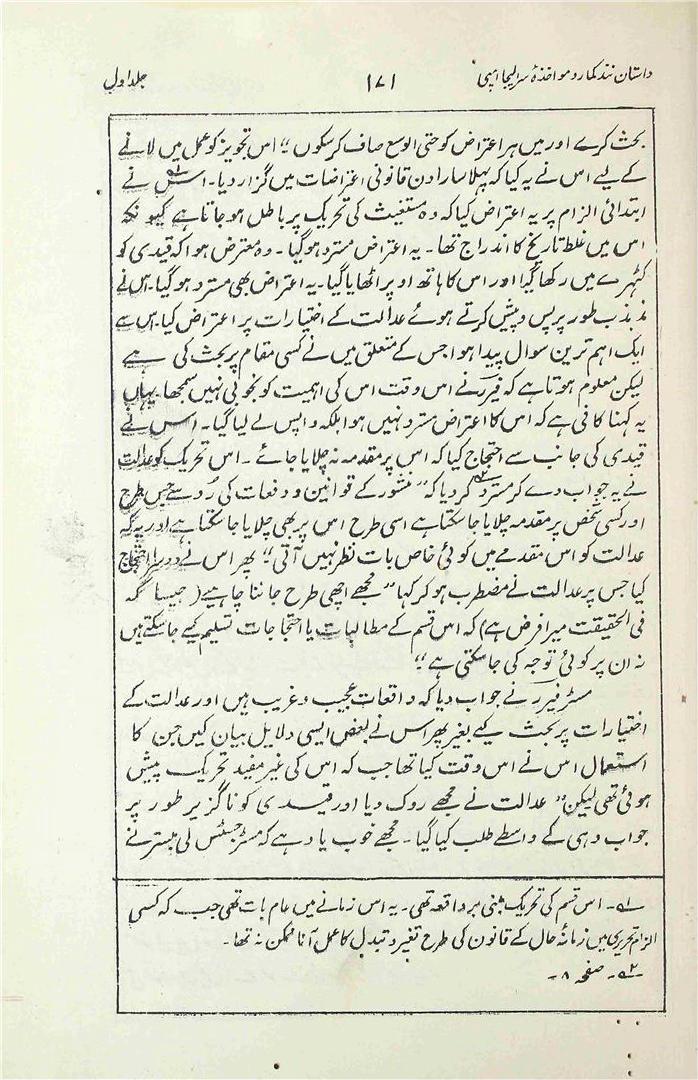 داستان نند کمار و مواخذۂ سر الیجا امپی
۱۷۱
جلد اول
بحث کرے اور میں ہر اعتراض کو حتی الوسع صاف کر سکوں“ اس تجویز کو عمل میں لانے
کے لیے اس نے یہ کیا کہ پہلا سارا دن قانونی اعتراضات میں گزار دیا۔ اس نے
ابتدائی الزام پر یہ اعتراض کیا کہ وہ مستغیث کی تحریک پر باطل ہو جاتا ہے کیونکہ
اس میں غلط تاریخ کا اندراج تھا۔ یہ اعتراض مسترد ہوگیا۔ وہ معترض ہوا کہ قیدی کو
کٹہرے میں رکھا گیا اور اس کا ہاتھ اوپر اٹھایا گیا۔ یہ اعتراض بھی مسترد ہوگیا۔ اس نے
مذبذب طور پر پس و پیش کرتے ہوئے عدالت کے اختیارات پر اعتراض کیا۔ اس سے
ایک اہم ترین سوال پیدا ہوا جس کے متعلق میں نے کسی مقام پر بحث کی ہے
لیکن معلوم ہوتا ہے کہ فیرر نے اس وقت اس کی اہمیت کو بخوبی نہیں سمجھا۔ یہاں
یہ کہنا کافی ہے کہ اس کا اعتراض مسترد نہیں ہوا بلکہ واپس لے لیا گیا۔ اس نے
قیدی کی جانب سے احتجاج کیا کہ اس پر مقدمہ نہ چلایا جائے۔ اس تحریک کو عدالت
نے یہ جواب دے کر مسترد کر دیا کہ ”منشور کے قوانین و دفعات کی رُو سے جس طرح
اور کسی شخص پر مقدمہ چلایا جا سکتا ہے اسی طرح اس پر بھی چلایا جا سکتا ہے اور یہ کہ
عدالت کو اس مقدمے میں کوئی خاص بات نظر نہیں آتی“ پھر اس نے دوسرا احتجاج
کیا جس پر عدالت نے مضطرب ہو کر کہا ”مجھے اچھی طرح جاننا چاہیے (جیسا کہ
فی الحقیقت میرا فرض ہے) کہ اس قسم کے مطالبات یا احتجاجات تسلیم کیے جا سکتے ہیں
نہ ان پر کوئی توجہ کی جا سکتی ہے“
مسٹر فیرر نے جواب دیا کہ واقعات عجیب و غریب ہیں اور عدالت کے
اختیارات پر بحث کیے بغیر پھر اس نے بعض ایسی دلایل بیان کیں جن کا
استعمال اس نے اس وقت کیا تھا جب کہ اس کی غیر مفید تحریک پیش
ہوئی تھی لیکن ”عدالت نے مجھے روک دیا اور قیدی کو ناگزیر طور پر
جواب دہی کے واسطے طلب کیا گیا۔ مجھے خوب یاد ہے کہ مسٹر جسٹس لی میسٹر نے
۱؎۔ اس قسم کی تحریک مبنی بر واقعہ تھی۔ یہ اس زمانے میں عام بات تھی جب کہ کسی
الزام تحریری میں زمانۂ حال کے قانون کی طرح تغیر و تبدل کا عمل آنا ممکن نہ تھا۔
۲؎۔ صفحہ ۸۔